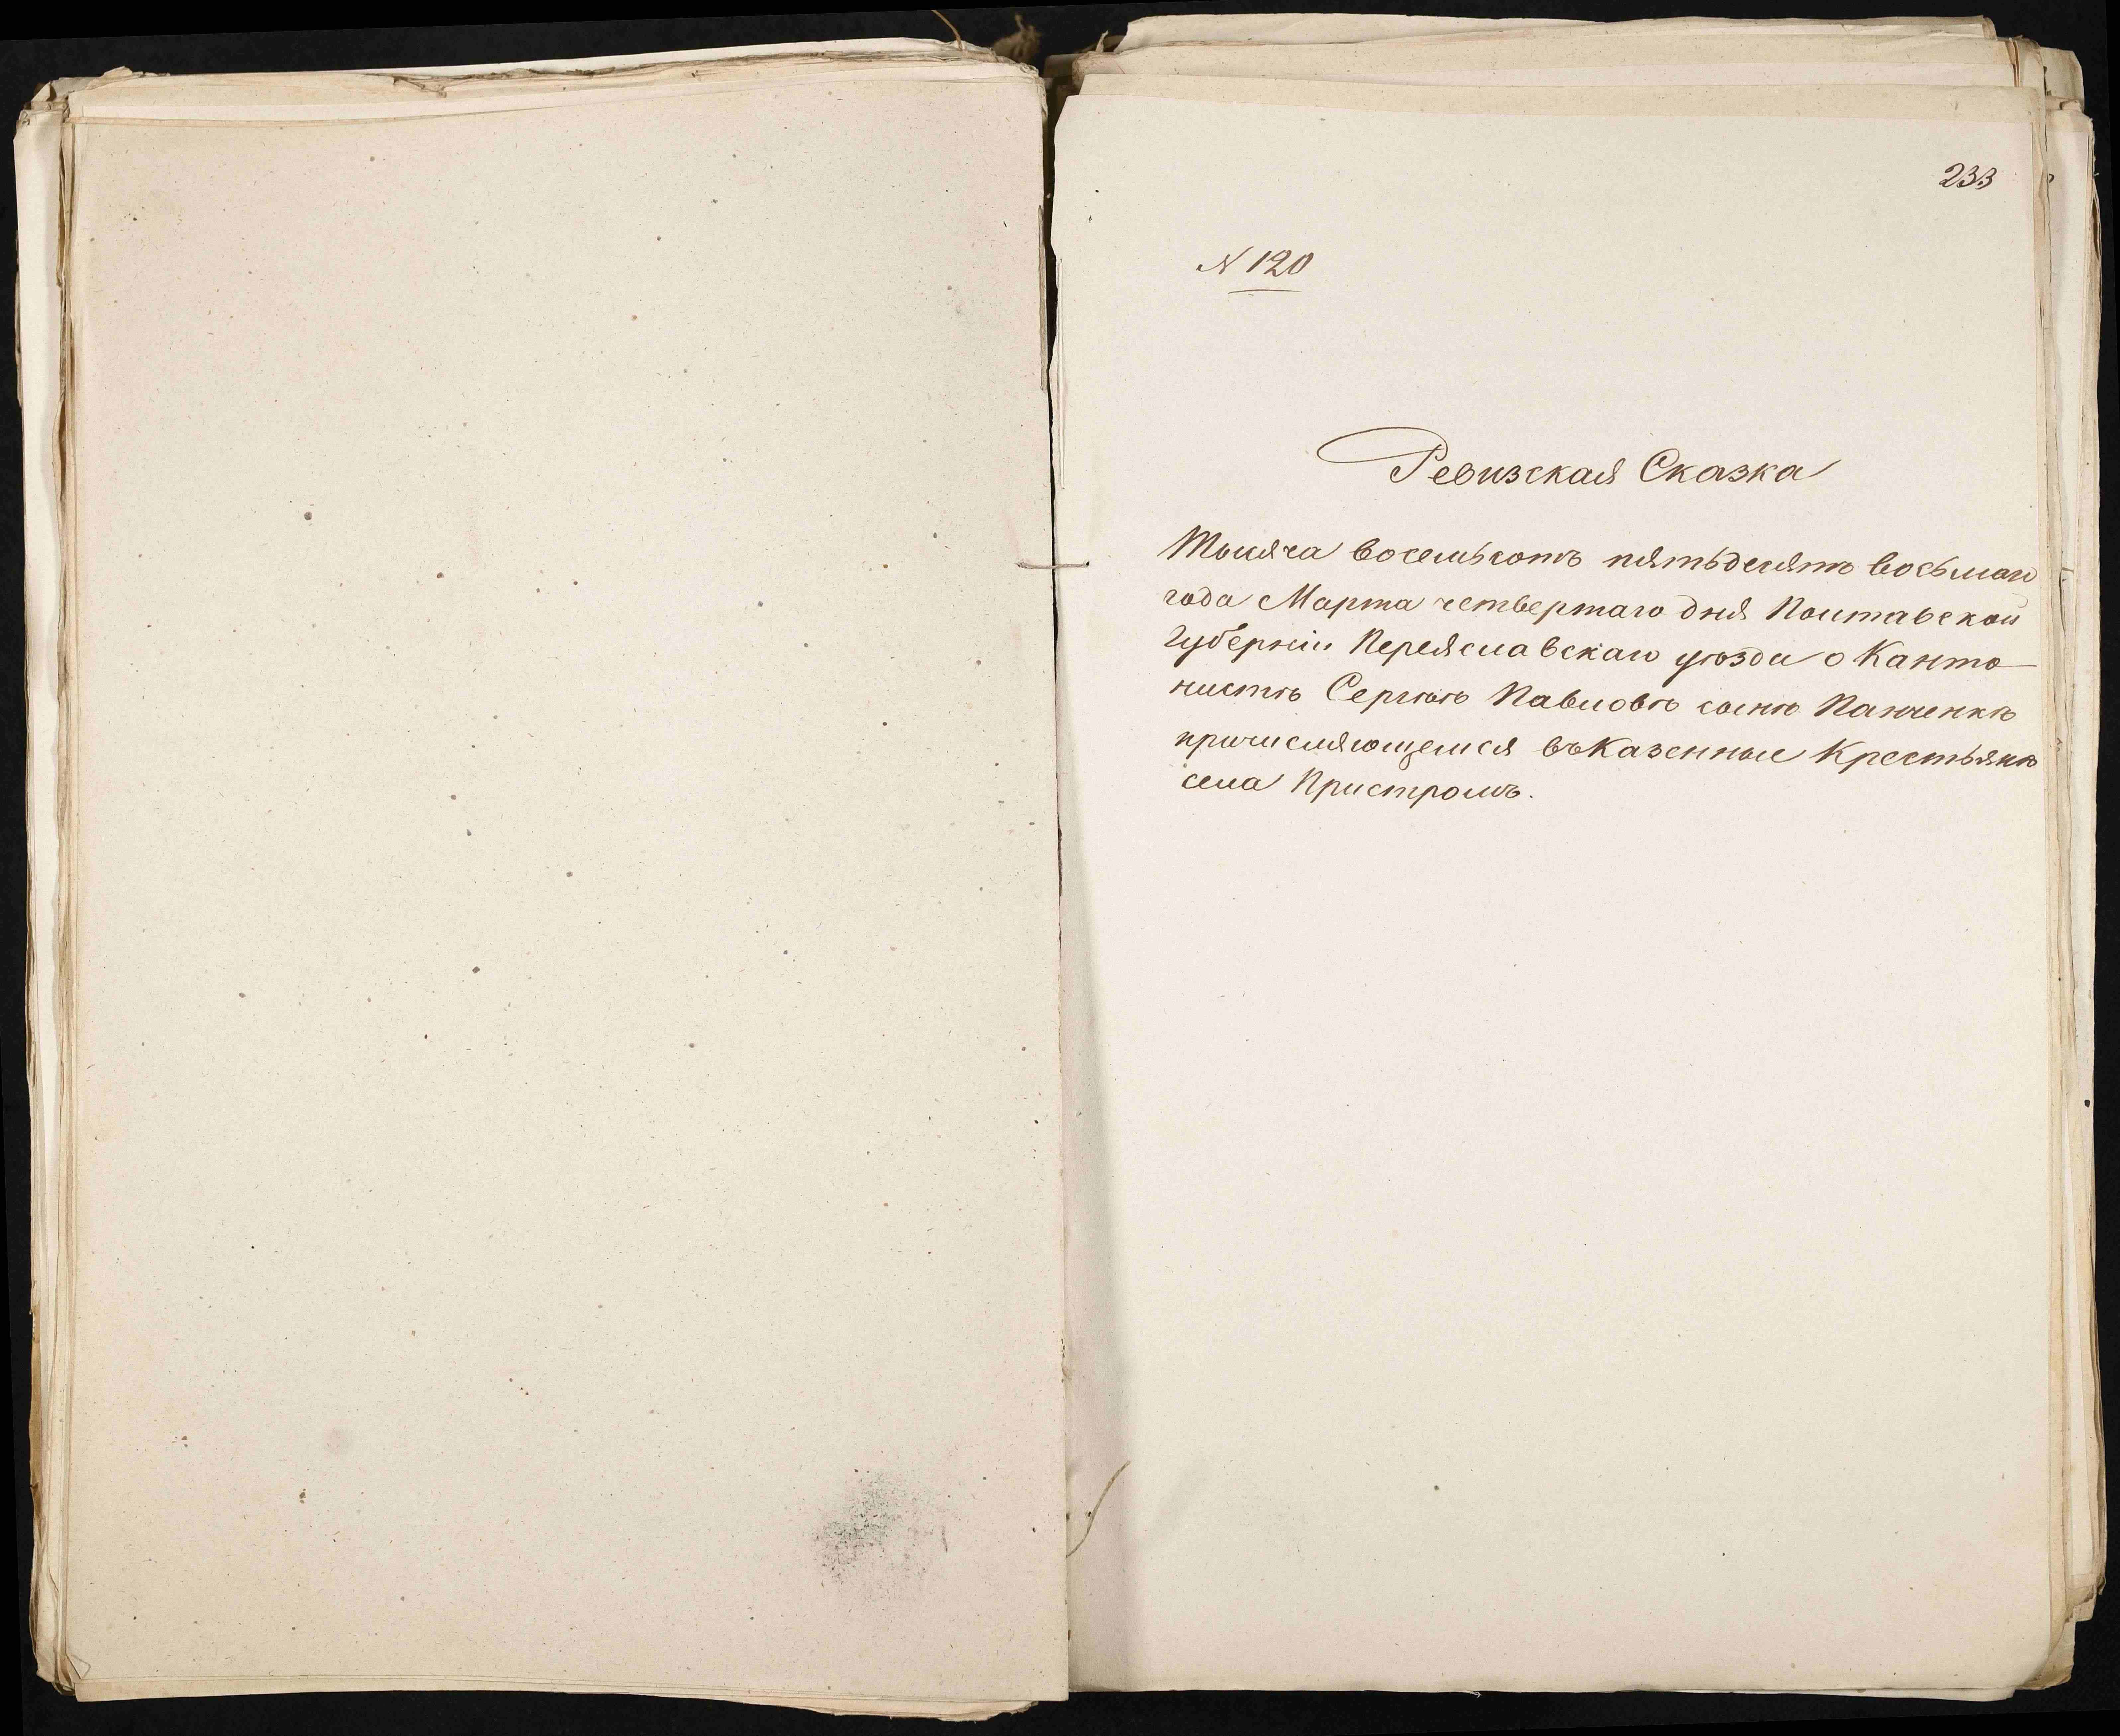 233
N 120
Ревизская Сказка
Тысяча восемьсотъ пятьдесятъ восьмаго
года Марта четвертаго дня Полтавской
Губерніи Переяславскаго уѣзда о Канто
нистѣ Сергѣѣ Павловѣ сынѣ Панченкѣ
причисляющемся въ Казенные Крестьянѣ
села Пристромъ.